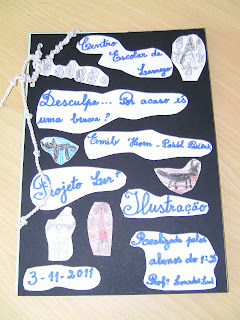 Centro
Escolar de
Lamego
Desculpa... Por acaso és
uma bruxa?
Emily Horn - Pawel Pawlak
Projeto Ler+
Ilustração
Realizado pelos
alunos do 1º D
Profª Lourdes
3-11-2011